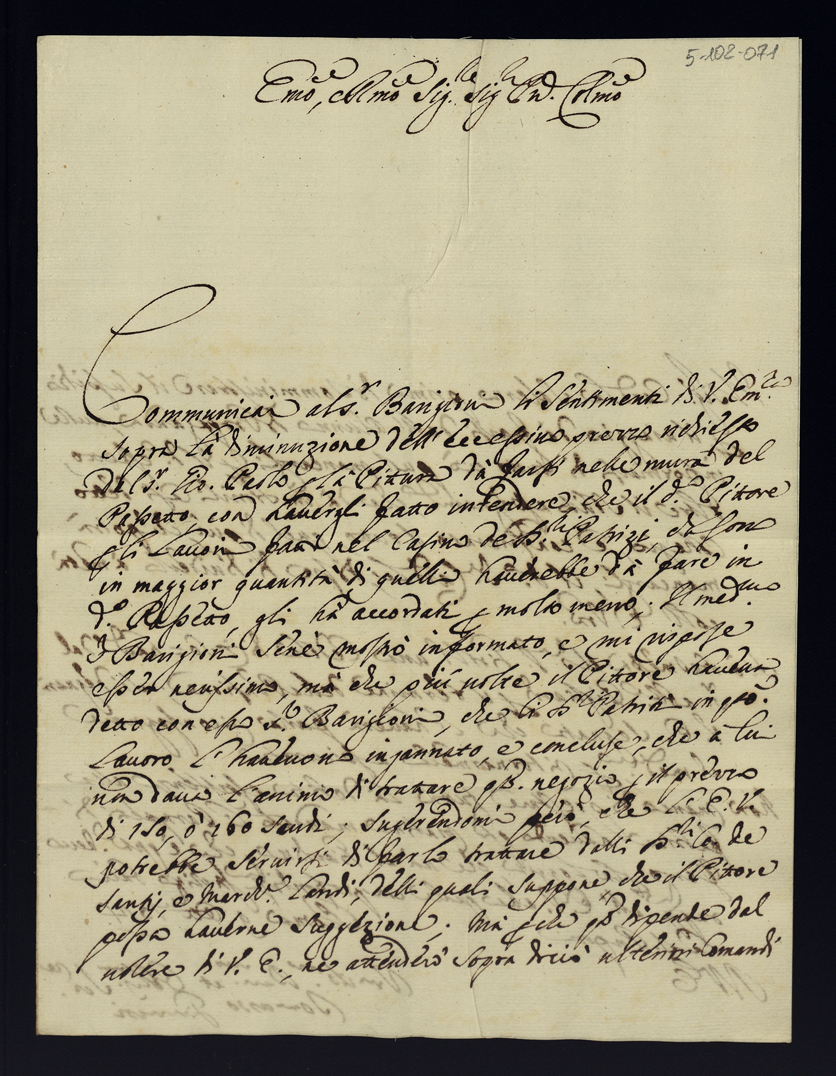 5-102-071
Emo, e Rmo Sig.re Sig.r Pad. Colmo
Communicai al S.r Barigioni li Sentimenti di V. Em.za
sopra la diminuzione dell' eccessivo prezzo richiesto
dal S. Gio. Paolo p la Pittura da farsi nelle mura del
Passetto con havergli fatto intendere, che il d.o Pittore
gli Lavori fatti nel Casino de SS.ri Patrizi, che sono
in maggior quantità di quelli haverebbe dà fare in
d.o Passetto, gli hà accordati p molto meno. Il med.mo
S Barigioni sene mostrò informato, e mi rispose
esser verissimo, mà che più volte il Pittore haveva
detto con esso S.r Barigioni, che li SS.ri Patritii in qsto
Lavoro l'havevano ingannato, e concluse, che a lui
non dava l'animo di trattare qsto negozio p il prezzo
di 150, ò 160 scudi; sugerendomi però, che l'E. V.
potrebbe servirsi di farlo trattare dalli SS.ri Co. de
Santij, e March.e Landi, delli quali suppone, che il Pittore
possa haverne suggezione. Mà p che qsto dipende dal
volere di V. E., ne attenderò sopra di ciò ulteriori Comandi